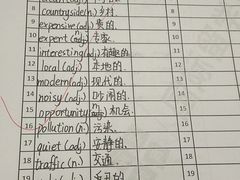 8 countryside(n.)乡村.
9 expensive(adj.)贵的.
10 expert(n.)专家.
11 interesting(adj.)有趣的.
12 local(adj.)本地的.
13 modern(adj.)现代的.
14 noisy(adj.)吵闹的.
15 opportunity(n.)机会.
16 pollution(n.)污染.
17 quiet(adj.)安静的.
18 traffic(n.)交通.